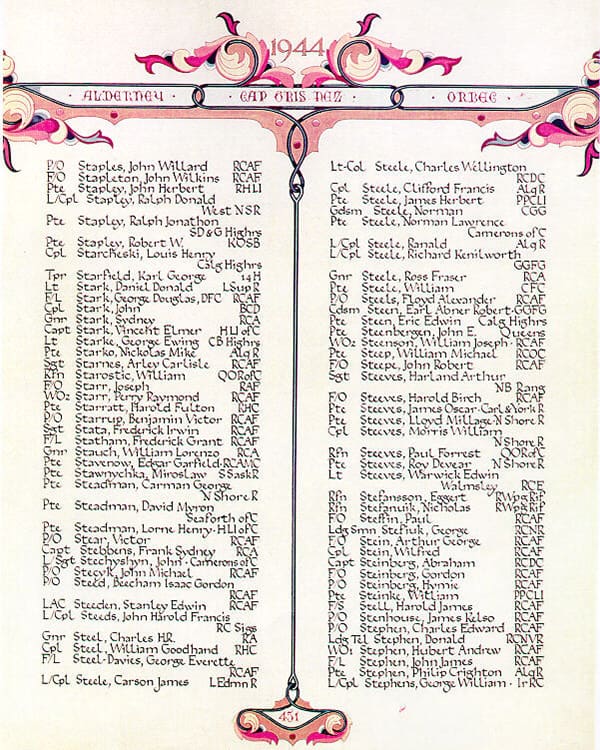 1944
· ALDERNEY · CAP GRIS NEZ · ORBEC ·
P/O Staples, John Willard RCAF
F/O Stapleton, John Wilkins RCAF
Pte Stapley, John Herbert RHLI
L/Cpl Stapley, Ralph Donald
West NSR
Pte Stapley, Ralph Jonathon
SD&G Highrs
Pte Stapley, Robert W. KOSB
Cpl Starcheski, Louis Henry
Calg Highrs
Tpr Starfield, Karl George 14H
Lt Stark, Daniel Donald LSup R
F/L Stark, George Douglas, DFC RCAF
Cpl Stark, John BCD
Gnr Stark, Sydney RCA
Capt Stark, Vincent Elmer HLI of C
Lt Starke, George Ewing CB Highrs
Pte Starko, Nickolas Mike Alq R
Sgt Starnes, Arley Carlisle RCAF
Rfn Starostic, William QOR of C
F/O Starr, Joseph RAF
WO2 Starr, Perry Raymond RCAF
Pte Starratt, Harold Fulton RHC
P/O Starrup, Benjamin Victor RCAF
Sgt Stata, Frederick Irwin RCAF
F/L Statham, Frederick Grant RCAF
Gnr Stauch, William Lorenzo RCA
Pte Stavenow, Edgar Garfield · RCAMC
Pte Stawnychka, Miroslaw S Sask R
Pte Steadman, Carman George
N Shore R
Pte Steadman, David Myron
Seaforth of C
Pte Steadman, Lorne Henry · HLI of C
P/O Stear, Victor RCAF
Capt Stebbens, Frank Sydney RCA
L/Sgt Stechyshyn, John · Camerons of C
P/O Stecyk, John Michael RCAF
P/O Steed, Beecham Isaac Gordon
RCAF
LAC Steeden, Stanley Edwin RCAF
L/Cpl Steeds, John Harold Francis
RC Sigs
Gnr Steel, Charles H.R. RA
Cpl Steel, William Goodhand RHC
F/L Steel-Davies, George Everette
RCAF
L/Cpl Steele, Carson James L Edmn R
Lt-Col Steele, Charles Wellington
RCDC
Cpl Steele, Clifford Francis Alq R
Pte Steele, James Herbert PPCLI
Gdsm Steele, Norman CGG
Pte Steele, Norman Lawrence
Camerons of C
L/Cpl Steele, Ranald Alq R
L/Cpl Steele, Richard Kenilworth
GGFG
Gnr Steele, Ross Fraser RCA
Pte Steele, William CFC
P/O Steels, Floyd Alexander RCAF
Gdsm Steen, Earl Abner Robert · GGFG
Pte Steen, Eric Edwin Calg Highrs
Pte Steenbergen, John E. Queens
WO2 Steenson, William Joseph · RCAF
Pte Steep, William Michael RCOC
F/O Steepe, John Robert RCAF
Sgt Steeves, Harland Arthur
NB Rang
F/O Steeves, Harold Birch RCAF
Pte Steeves, James Oscar · Carl & York R
Pte Steeves, Lloyd Millage · N Shore R
Cpl Steeves, Morris William
N Shore R
Rfn Steeves, Paul Forrest QOR of C
Pte Steeves, Roy Devear N Shore R
Lt Steeves, Warwick Edwin
Walmsley RCE
Rfn Stefansson, Eggert RWpg Rif
Rfn Stefanuik, Nicholas RWpg Rif
F/O Steffin, Paul RCAF
Ldg Smn Stefiuk, George RCNR
F/O Stein, Arthur George RCAF
Cpl Stein, Wilfred RCAF
Capt Steinberg, Abraham RCDC
F/O Steinberg, Gordon RCAF
P/O Steinberg, Hymie RCAF
Pte Steinke, William PPCLI
F/S Stell, Harold James RCAF
P/O Stenhouse, James Kelso RCAF
P/O Stephen, Charles Edward RCAF
Ldg Tel Stephen, Donald RCNVR
WO1 Stephen, Hubert Andrew RCAF
F/L Stephen, John James RCAF
Pte Stephen, Philip Crighton Alq R
L/Cpl Stephens, George William · Ir RC
451